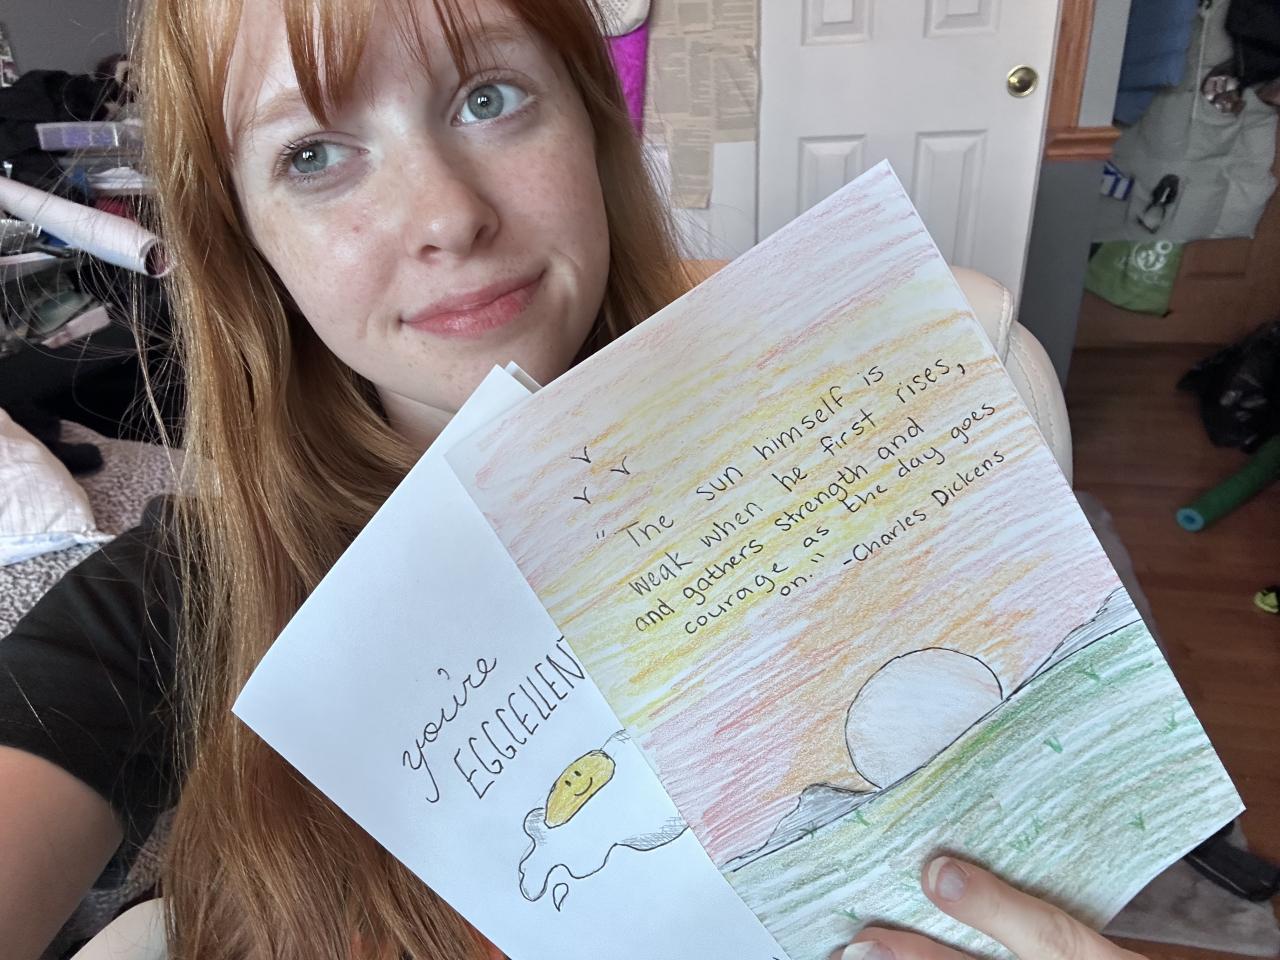 " The sun himself is
weak when he first rises,
and gathers strength and
courage as the day goes
on." -Charles Dickens
you're
EGGCELLENT